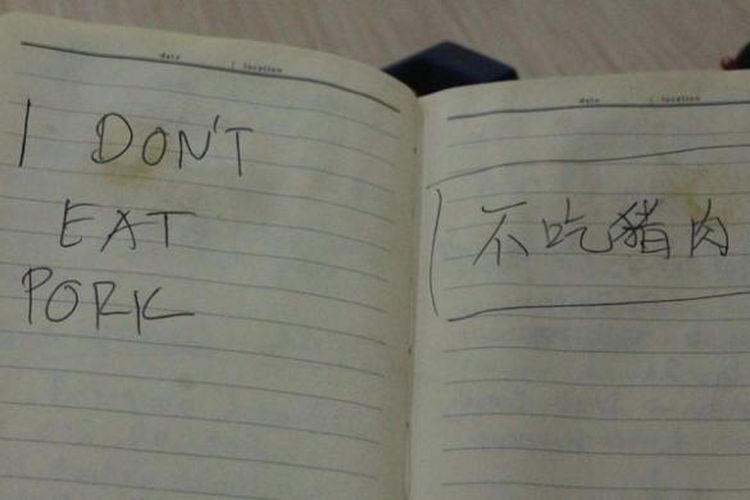 date | location
I DON'T
EAT
PORK
date | location
不吃豬肉